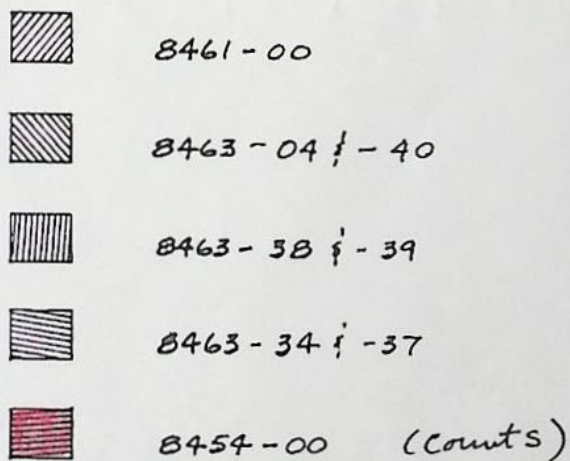 8461-00
8463-04 & -40
8463-38 & -39
8463-34 & -37
8454-00 (Counts)